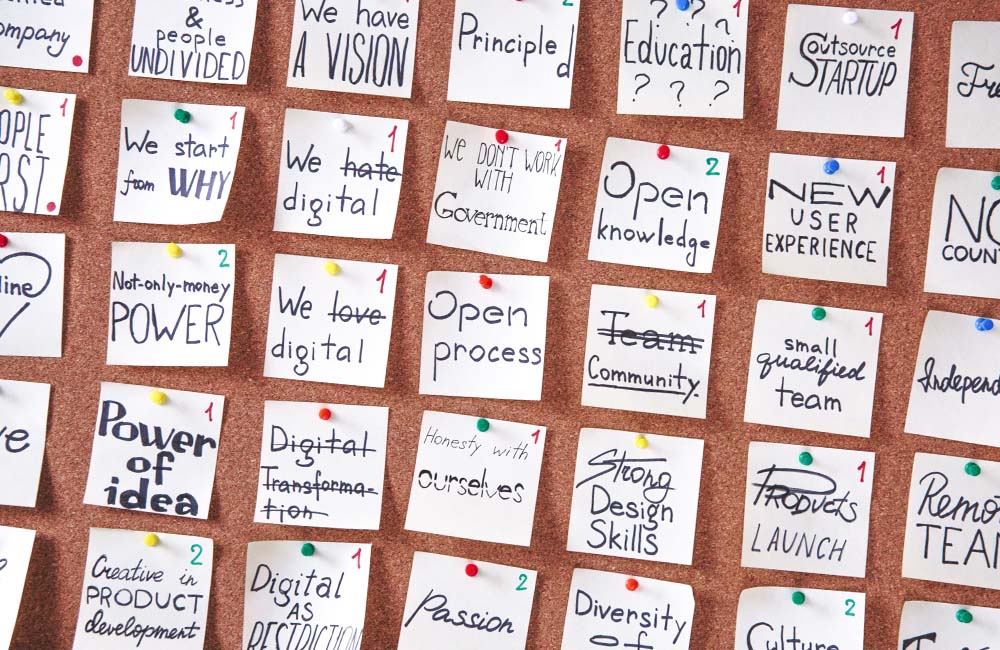 company
&
people
UNDIVIDED
We have
A VISION
2
Principled
? ? ?
1
Education
? ? ?
1
Outsource
STARTUP
1
We start
from WHY
1
We hate
digital
1
We DON'T WORK
WITH
Government
2
Open
knowledge
1
NEW
USER
EXPERIENCE
2
Not-only-money
POWER
1
We love
digital
Open
process
1
Team
Community.
1
small
qualified
team
1
Power
of
idea
Digital
Transforma-
tion
1
Honesty with
ourselves
Strong
Design
Skills
1
Products
LAUNCH
TEAM
2
Creative in
PRODUCT
development
1
Digital
AS
2
Passion
Diversity
of
2
Culture